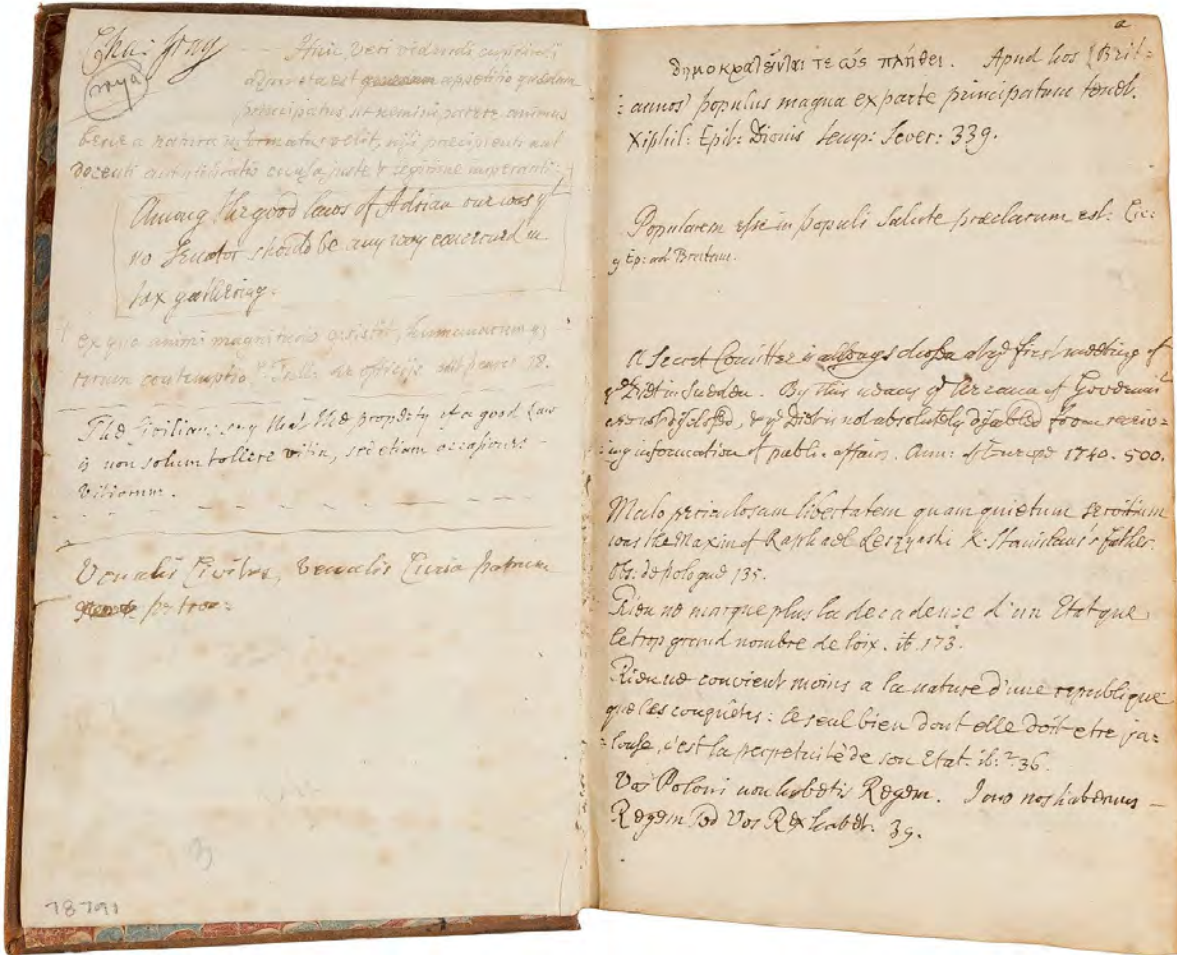 Cha: Gray
Huic veri videndi cupiditati
adjuncta est appetitio quædam
principatus, ut nemini parere animus
bene a natura informatus velit, nisi præcipienti aut
docenti aut utilitatis causa juste & legitime imperanti:
Among the good laws of Adrian one was yt
no Senator should be any way concerned in
tax gathering.
ex quo animi magnitudo existit, humanarumq;
rerum contemptio. Tull: de officijs 18.
The Civilians say that the property of a good Law
is non solum tollere vitia, sed etiam occasiones
vitiorum.
Venalis Civitas, venalis Curia patrum
petron:
78791
a
δημοκρατοῦνται τε ὡς πλήθει. Apud hos (Brit=
=annos) populus magna ex parte principatum tenet.
Xiphil: Epit: Dionis temp: Sever: 339.
Popularem esse in populi Salute præclarum est: Cic:
9 Ep: ad Brutum.
A Secret Comittee is always chosen at ye first meeting of
ye Diet in Sweden. By this means ye Arcana of Governmt
are not disclosed, & ye Diet is not absolutely disabled from receiv=
=ing information of publi. affairs. Ann: of Europe 1740. 500.
Malo periculosam libertatem quam quietum servitium
was the Maxim of Raphael Leszynski K. Stanislaus's father.
Obs: de pologne 135.
Rien ne marque plus la decadence d'un Etat que
le trop grand nombre de loix. ib. 173.
Rien ne convient moins a la nature d'une republique
que les conquêtes: le seul bien dont elle doit etre ja=
=louse, c'est la perpetuité de son Etat. ib: 2. 36.
Vos Poloni non habetis Regem. Imo nos habemus
Regem sed Vos Rex habet. 39.